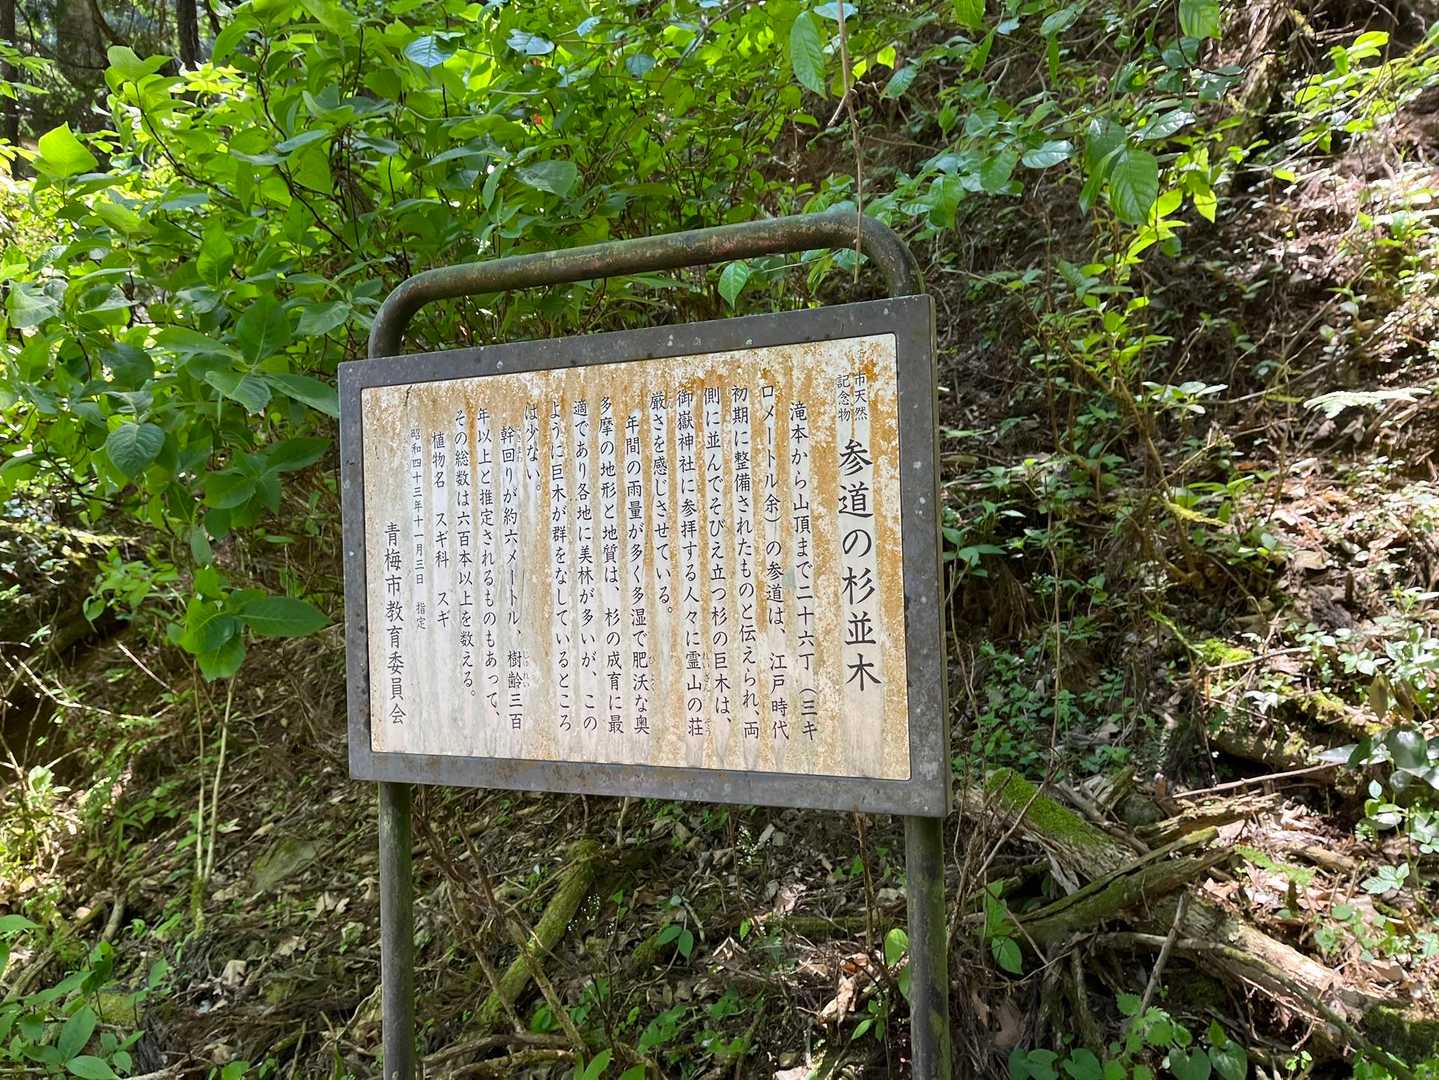 市天然
記念物
参道の杉並木
滝本から山頂まで二十六丁（三キ
ロメートル余）の参道は、江戸時代
初期に整備されたものと伝えられ、両
側に並んでそびえ立つ杉の巨木は、
御嶽神社に参拝する人々に霊山の荘
厳さを感じさせている。
年間の雨量が多く多湿で肥沃な奥
多摩の地形と地質は、杉の成育に最
適であり各地に美林が多いが、この
ように巨木が群をなしているところ
は少ない。
幹回りが約六メートル、樹齢三百
年以上と推定されるものもあって、
その総数は六百本以上を数える。
植物名　スギ科　スギ
昭和四十三年十一月三日　指定
青梅市教育委員会